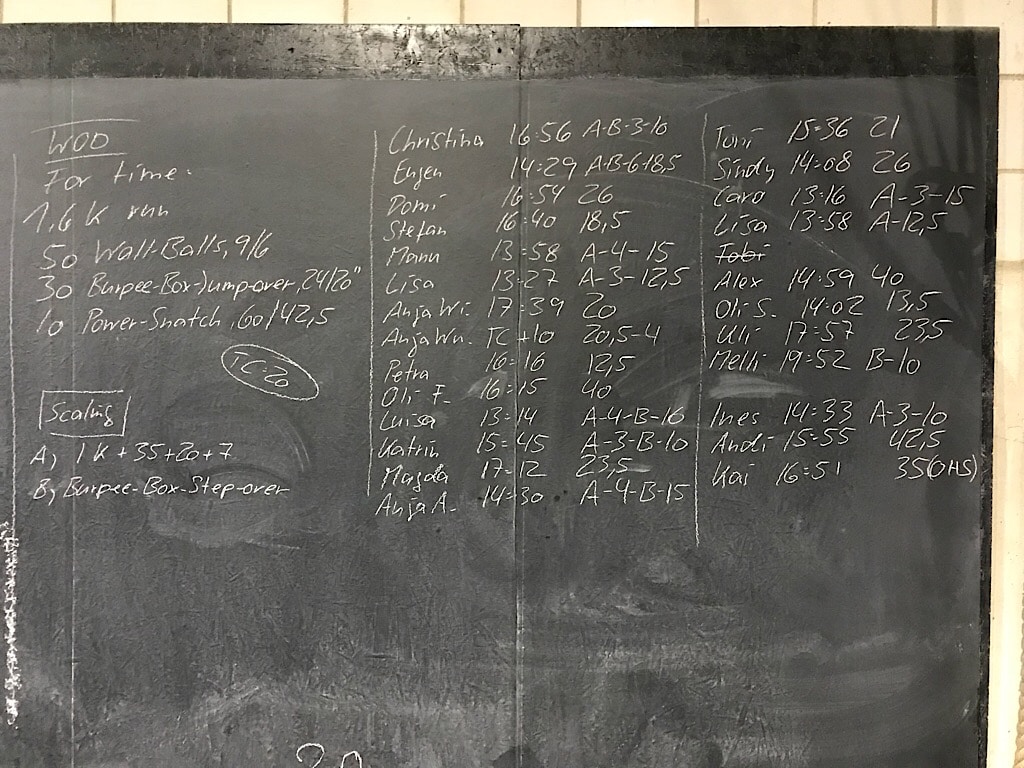 WOD
For time:
1,6 K run
50 Wall-Balls, 9/6
30 Burpee-Box-Jump-over, 24/20"
10 Power-Snatch, 60/42,5
TC=20
Scaling
A) 1K+35+20+7
B) Burpee-Box-Step-over
Christina 16:56 A-B-3-10
Eugen 14:29 A-B-6-18,5
Domi 16:54 26
Stefan 16:40 18,5
Manu 13:58 A-4-15
Lisa 13:27 A-3-12,5
Anja Wi. 17:39 20
Anja Wn. TC+10 20,5-4
Petra 16:16 12,5
Oli F. 16:15 40
Luisa 13:14 A-4-B-16
Katrin 15:45 A-3-B-10
Magda 17:12 23,5
Anja A. 14:30 A-4-B-15
Toni 15:36 21
Sindy 14:08 26
Caro 13:16 A-3-15
Lisa 13:58 A-12,5
Tobi
Alex 14:59 40
Oli S. 14:02 13,5
Uli 17:57 23,5
Melli 19:52 B-10
Ines 14:33 A-3-10
Andi 15:55 42,5
Kai 16:51 35(OHS)